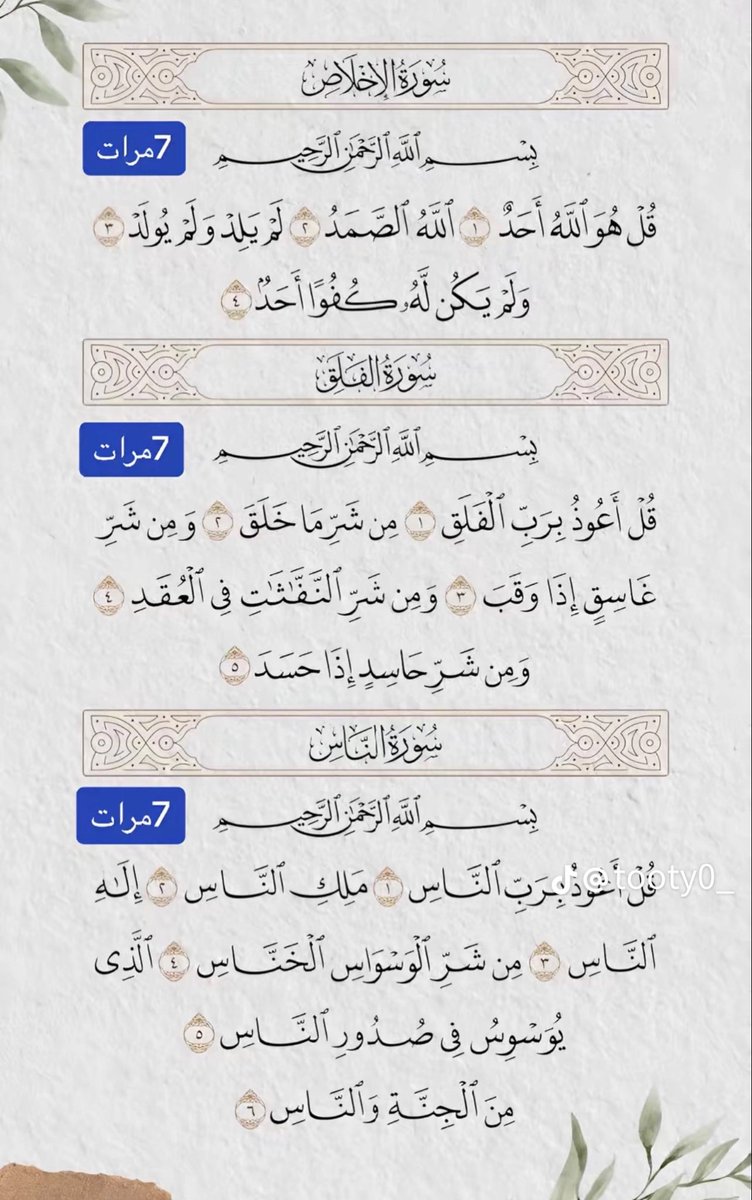 سُورَةُ الإِخْلَاصِ
بِسْمِ ٱللَّهِ ٱلرَّحْمَٰنِ ٱلرَّحِيمِ
7مرات
قُلْ هُوَ ٱللَّهُ أَحَدٌ ١ ٱللَّهُ ٱلصَّمَدُ ٢ لَمْ يَلِدْ وَلَمْ يُولَدْ ٣
وَلَمْ يَكُن لَّهُۥ كُفُوًا أَحَدٌۢ ٤
سُورَةُ الفَلَقِ
بِسْمِ ٱللَّهِ ٱلرَّحْمَٰنِ ٱلرَّحِيمِ
7مرات
قُلْ أَعُوذُ بِرَبِّ ٱلْفَلَقِ ١ مِن شَرِّ مَا خَلَقَ ٢ وَمِن شَرِّ
غَاسِقٍ إِذَا وَقَبَ ٣ وَمِن شَرِّ ٱلنَّفَّٰثَٰتِ فِى ٱلْعُقَدِ ٤
وَمِن شَرِّ حَاسِدٍ إِذَا حَسَدَ ٥
سُورَةُ النَّاسِ
بِسْمِ ٱللَّهِ ٱلرَّحْمَٰنِ ٱلرَّحِيمِ
7مرات
قُلْ أَعُوذُ بِرَبِّ ٱلنَّاسِ ١ مَلِكِ ٱلنَّاسِ ٢ إِلَٰهِ
@tooty0_
ٱلنَّاسِ ٣ مِن شَرِّ ٱلْوَسْوَاسِ ٱلْخَنَّاسِ ٤ ٱلَّذِى
يُوَسْوِسُ فِى صُدُورِ ٱلنَّاسِ ٥
مِنَ ٱلْجِنَّةِ وَٱلنَّاسِ ٦